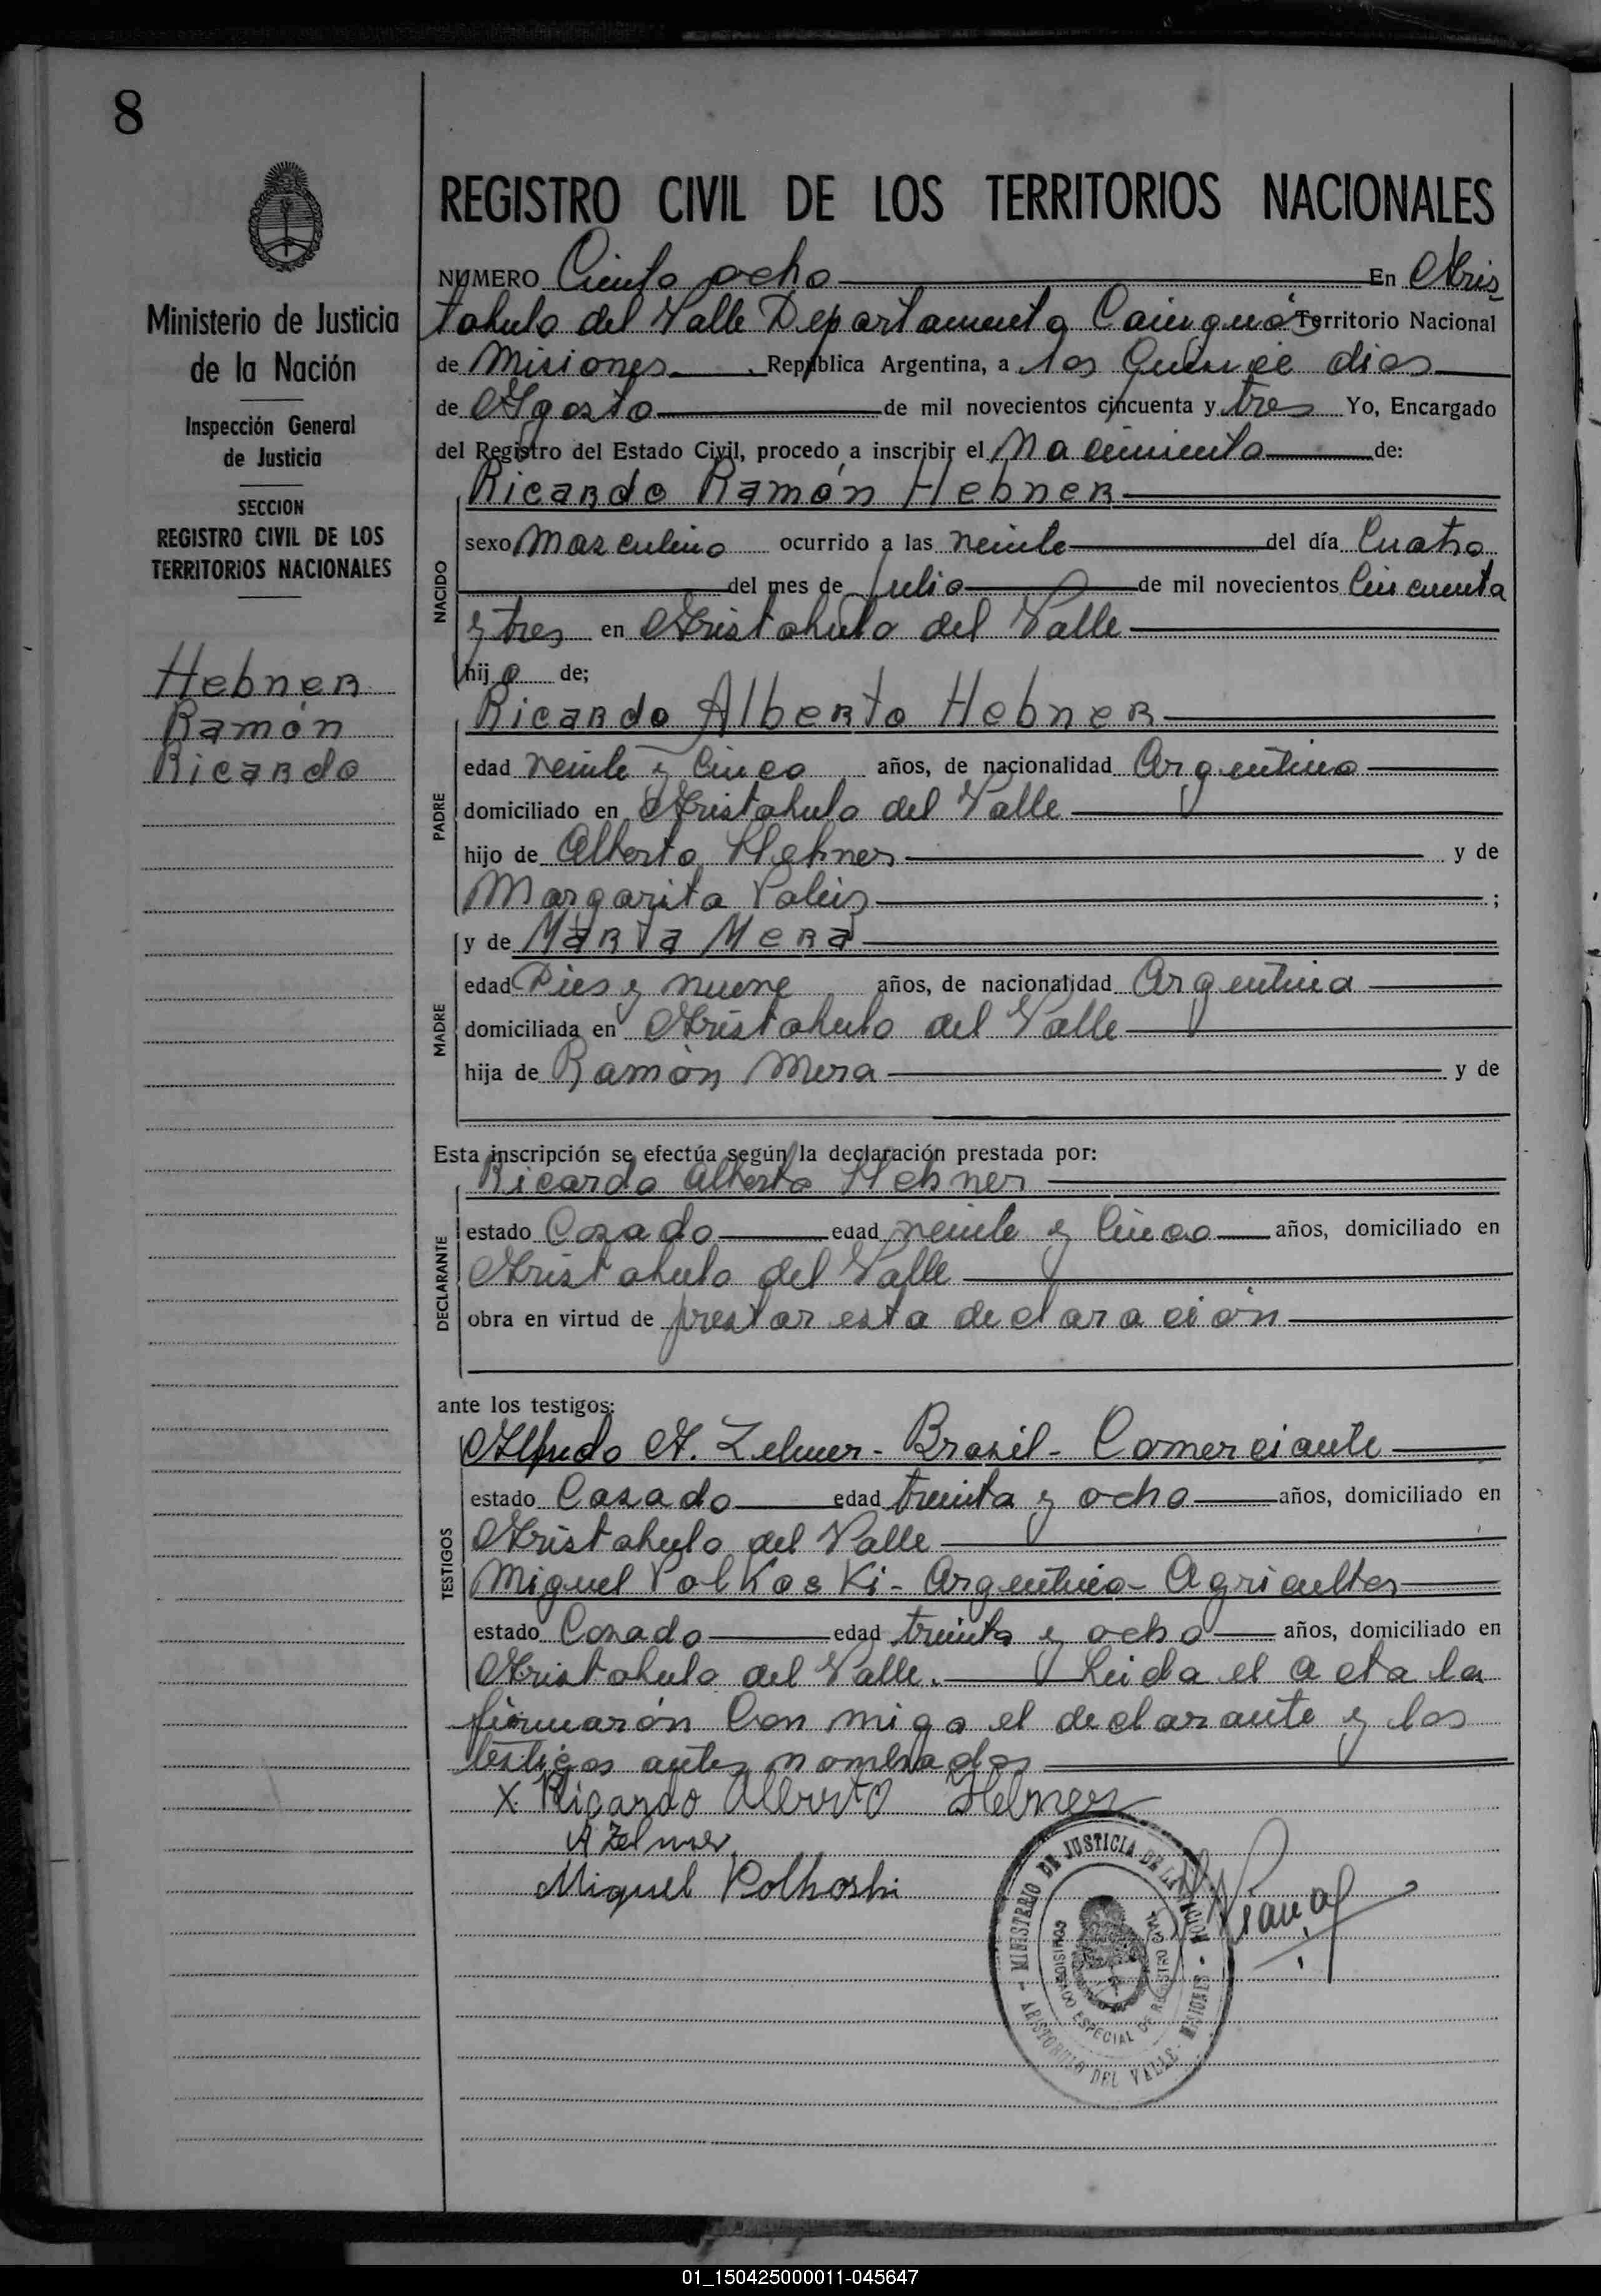 8
Ministerio de Justicia
de la Nación
Inspección General
de Justicia
SECCION
REGISTRO CIVIL DE LOS
TERRITORIOS NACIONALES
Hebner
Ramón
Ricardo
REGISTRO CIVIL DE LOS TERRITORIOS NACIONALES
NUMERO Ciento ocho En Aris
tobulo del Valle Departamento Cainguás Territorio Nacional
de Misiones. República Argentina, a los Quince dias
de Agosto de mil novecientos cincuenta y tres Yo, Encargado
del Registro del Estado Civil, procedo a inscribir el Nacimiento de:
NACIDO
Ricardo Ramón Hebner
sexo Masculino ocurrido a las veinte del día Cuatro
del mes de Julio de mil novecientos Cincuenta
y tres en Aristobulo del Valle
hijo de;
PADRE
Ricardo Alberto Hebner
edad veinte y Cinco años, de nacionalidad Argentino
domiciliado en Aristobulo del Valle
hijo de Alberto Hebner y de
Margarita ;
MADRE
y de Marta Mera
edad Dies y nueve años, de nacionalidad Argentina
domiciliada en Aristobulo del Valle
hija de Ramón Mera y de
Esta inscripción se efectúa según la declaración prestada por:
DECLARANTE
Ricardo Alberto Hebner
estado Casado edad veinte y Cinco años, domiciliado en
Aristobulo del Valle
obra en virtud de prestar esta declaración
ante los testigos:
TESTIGOS
Alfredo A. Zelmer - Brasil - Comerciante
estado Casado edad treinta y ocho años, domiciliado en
Aristobulo del Valle
Miguel Polkoski - Argentino - Agricultor
estado Casado edad treinta y ocho años, domiciliado en
Aristobulo del Valle. Leida el acta la
firmarón Con migo el declarante y los
testigos antes nombrados
X Ricardo Alberto Hebner
A Zelmer
Miguel Polkoski
MINISTERIO DE JUSTICIA DE LA NACION - MISIONES - ARISTOBULO DEL VALLE -
COMISIONADO ESPECIAL DE REGISTRO CIVIL
01_150425000011-045647